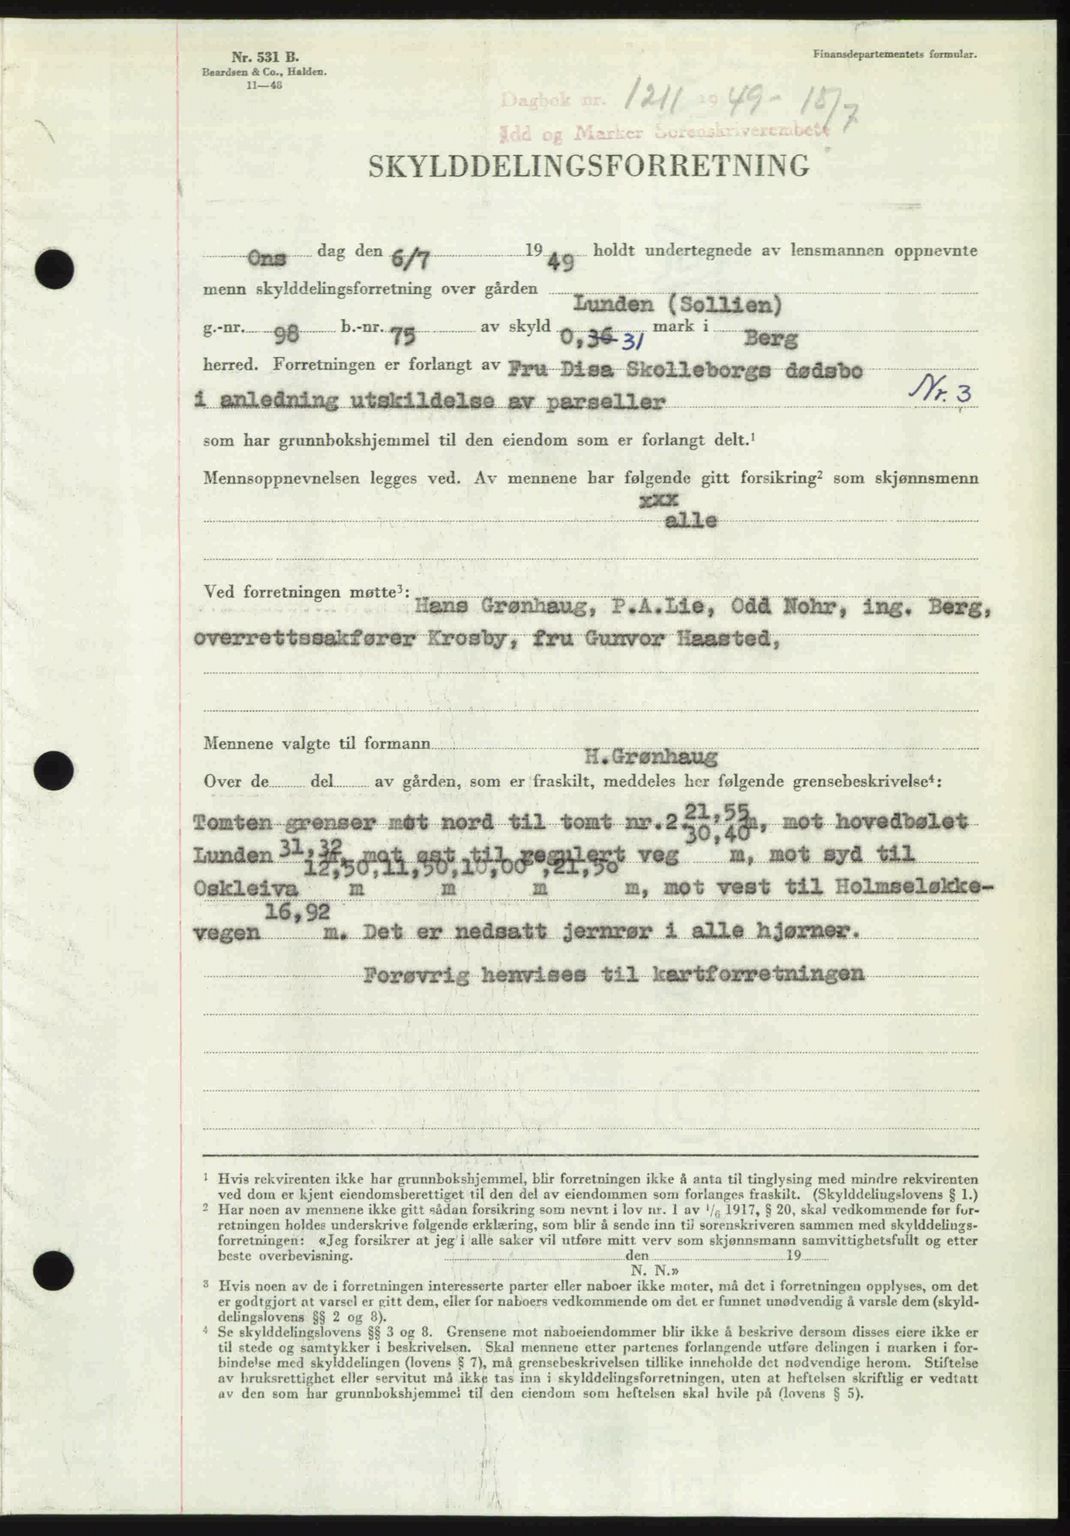 Nr. 531 B.
Beardsen & Co., Halden.
11—48
Finansdepartementets formular.
Dagbok nr. 1211 1949 - 18/7
Idd og Marker Sorenskriverembete
SKYLDDELINGSFORRETNING
Ons dag den 6/7 1949 holdt undertegnede av lensmannen oppnevnte
menn skylddelingsforretning over gården Lunden (Sollien)
g.-nr. 98 b.-nr. 75 av skyld 0,36 31 mark i Berg
herred. Forretningen er forlangt av Fru Disa Skolleborgs dødsbo
i anledning utskildelse av parseller Nr. 3
som har grunnbokshjemmel til den eiendom som er forlangt delt.¹
Mennsoppnevnelsen legges ved. Av mennene har følgende gitt forsikring² som skjønnsmenn
xxx
alle
Ved forretningen møtte³: Hans Grønhaug, P.A.Lie, Odd Nohr, ing. Berg,
overrettssakfører Krosby, fru Gunvor Haasted,
Mennene valgte til formann H.Grønhaug
Over de del av gården, som er fraskilt, meddeles her følgende grensebeskrivelse⁴:
21,55
Tomten grenser møt nord til tomt nr.2 m, mot hovedbølet
30,40
31,32
Lunden m, mot øst til regulert veg m, mot syd til
12,50,11,50,10,00 ,21,50
Oskleiva m m m m, mot vest til Holmseløkke-
16,92
vegen m. Det er nedsatt jernrør i alle hjørner.
Forøvrig henvises til kartforretningen
¹ Hvis rekvirenten ikke har grunnbokshjemmel, blir forretningen ikke å anta til tinglysing med mindre rekvirenten
ved dom er kjent eiendomsberettiget til den del av eiendommen som forlanges fraskilt. (Skylddelingslovens § 1.)
² Har noen av mennene ikke gitt sådan forsikring som nevnt i lov nr. 1 av 1/6 1917, § 20, skal vedkommende før for-
retningen holdes underskrive følgende erklæring, som blir å sende inn til sorenskriveren sammen med skylddelings-
forretningen: «Jeg forsikrer at jeg i alle saker vil utføre mitt verv som skjønnsmann samvittighetsfullt og etter
beste overbevisning. den 19
N. N.»
³ Hvis noen av de i forretningen interesserte parter eller naboer ikke møter, må det i forretningen opplyses, om det
er godtgjort at varsel er gitt dem, eller for naboers vedkommende om det er funnet unødvendig å varsle dem (skyld-
delingslovens §§ 2 og 8).
⁴ Se skylddelingslovens §§ 3 og 8. Grensene mot naboeiendommer blir ikke å beskrive dersom disses eiere ikke er
til stede og samtykker i beskrivelsen. Skal mennene etter partenes forlangende utføre delingen i marken i for-
bindelse med skylddelingen (lovens § 7), må grensebeskrivelsen tillike inneholde det nødvendige herom. Stiftelse
av bruksrettighet eller servitut må ikke tas inn i skylddelingsforretningen, uten at heftelsen skriftlig er vedtatt
av den som har grunnbokshjemmel til den eiendom som heftelsen skal hvile på (lovens § 5).